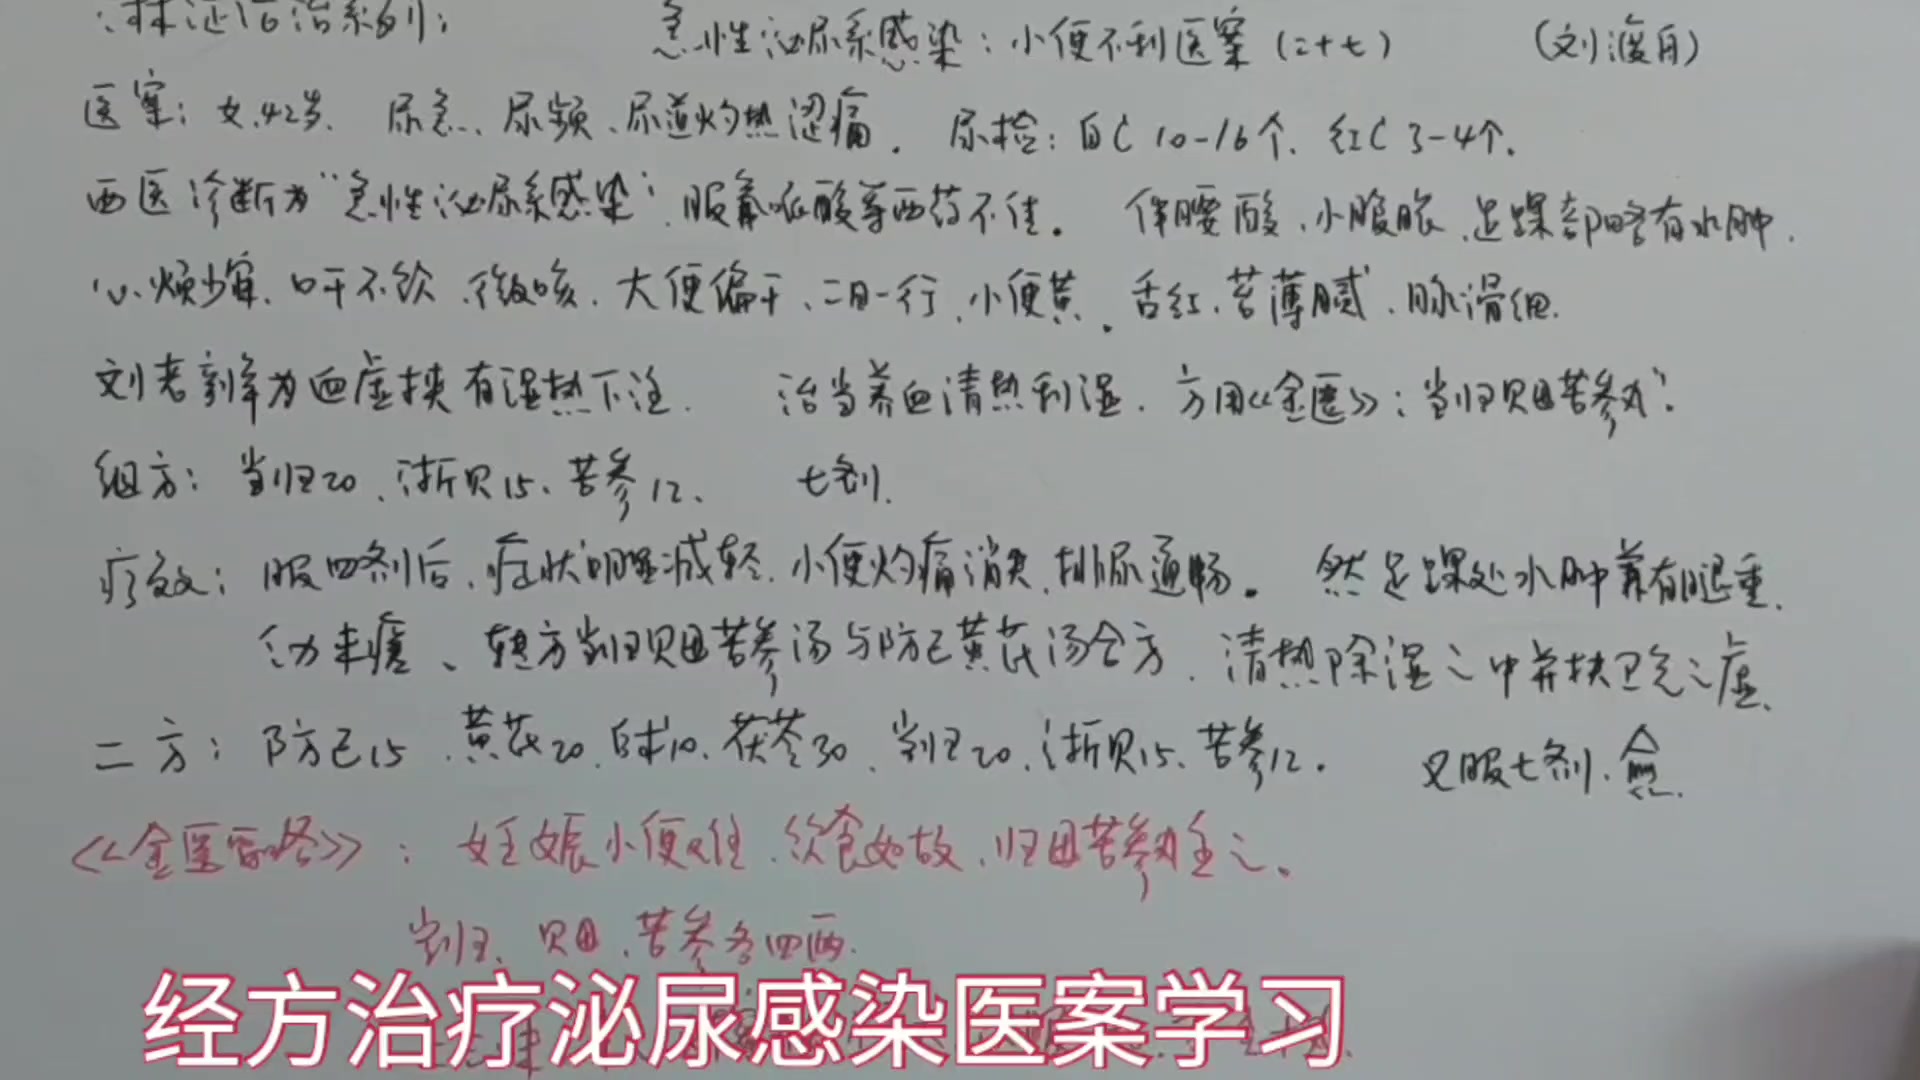 淋证论治系列: 急性泌尿系感染:小便不利医案(二十七) (刘渡舟)
医案:女.42岁、尿急、尿频、尿道灼热涩痛。尿检:白C 10-16个、红C 3-4个.
西医诊断为“急性泌尿系感染”,服氟哌酸等西药不佳。伴腰酸、小腹胀、足踝部略有水肿.
心烦少寐、口干不饮、微咳、大便偏干、二日一行、小便黄。舌红、苔薄腻、脉滑细.
刘老辨为血虚挟有湿热下注. 治当养血清热利湿. 方用《金匮》:当归贝母苦参丸”.
组方:当归20、浙贝15、苦参12、 七剂.
疗效:服四剂后,症状明显减轻.小便灼痛消失,排尿通畅。然足踝处水肿兼有腿重、
仍未瘥、转方当归贝母苦参汤与防己黄芪汤合方.清热除湿之中并扶卫气之虚、
二方:防己15、黄芪20、白术10、茯苓30、当归20、浙贝15、苦参12. 又服七剂.愈.
《金匮要略》:妊娠小便难,饮食如故,归母苦参丸主之。
当归、贝母、苦参各四两.
经方治疗泌尿感染医案学习